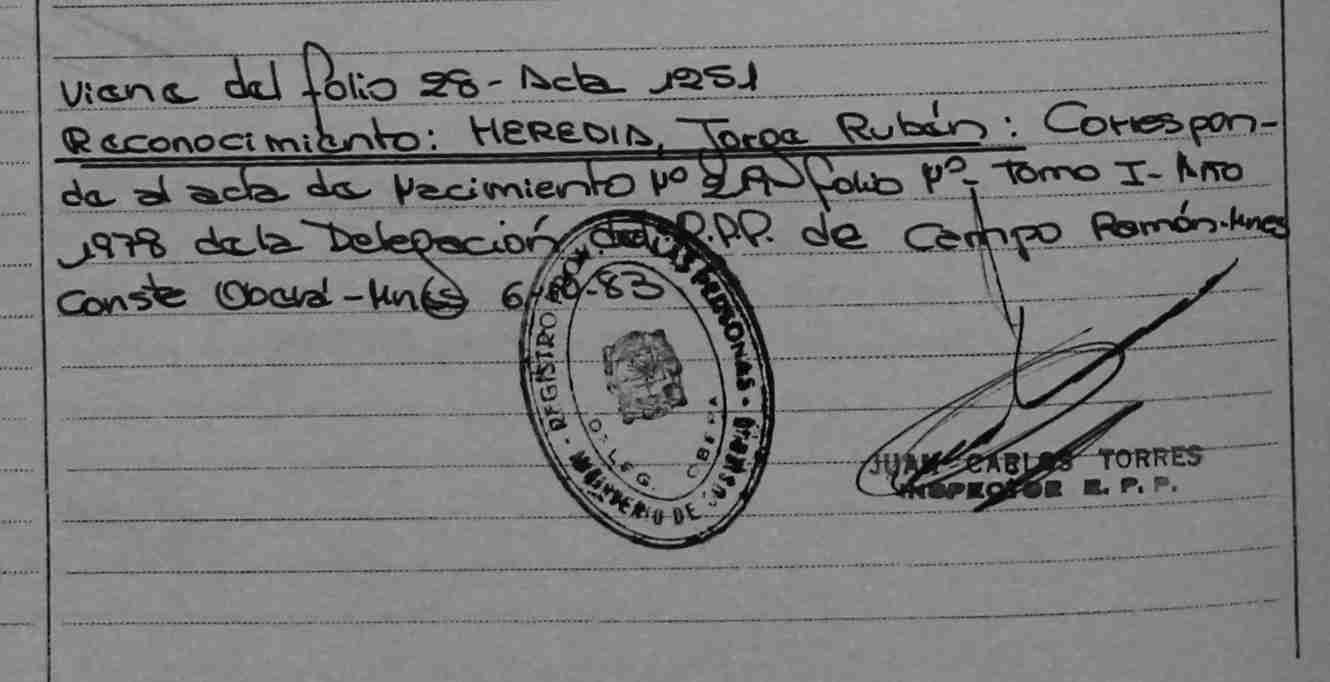 Viene del folio 28 - Acta 1251
Reconocimiento: HEREDIA, Jorge Rubén: Correspon-
de al acta de Nacimiento Nº folio Nº Tomo I - Año
1978 de la Delegación del R.P.P. de Campo Ramón - Mnes
Conste Oberá - Mnes 6-10-83
REGISTRO PROV. DE LAS PERSONAS
DELEG. OBERA
MINISTERIO DE
JUAN CARLOS TORRES
INSPECTOR R. P. P.